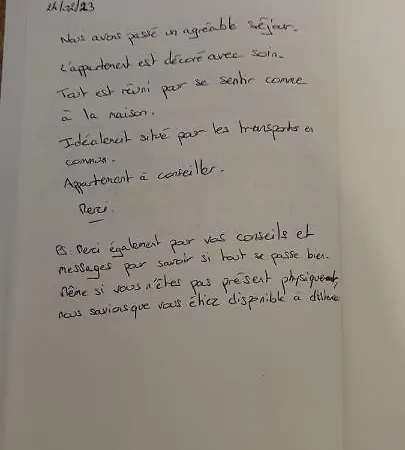 Nous avons passé un agréable séjour.
L'appartement est décoré avec soin.
Tout est réuni pour se sentir comme
à la maison.
Idéalement situé pour les transports en
commun.
Appartement à conseiller.
Merci.
PS. Merci également pour vos conseils et
messages pour savoir si tout se passe bien.
Même si vous n'êtes pas présent physiquement,
nous savions que vous étiez disponible à distance